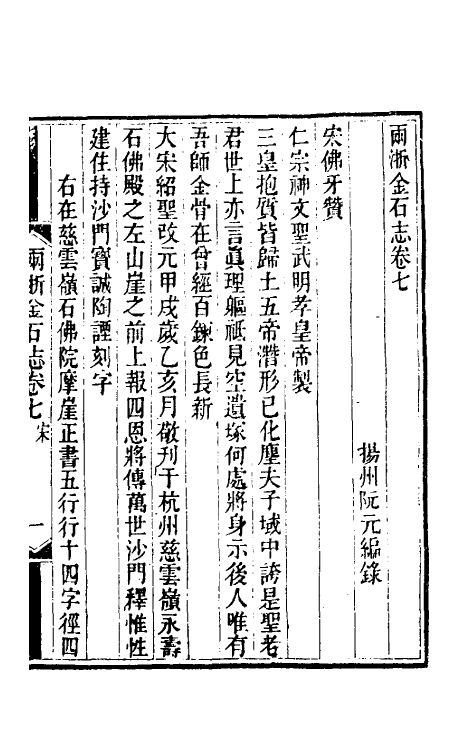 兩浙金石志卷七
揚州阮元編錄
宋佛牙贊
仁宗神文聖武明孝皇帝製
三皇抱質皆歸土五帝潛形已化塵夫子域中誇是聖老
君世上亦言眞埋軀祗見空遺塚何處將身示後人唯有
吾師金骨在曾經百鍊色長新
大宋紹聖改元甲戌歲乙亥月敬刊于杭州慈雲嶺永壽
石佛殿之左山崖之前上報四恩將傳萬世沙門釋惟性
建住持沙門寶誠陶諲刻字
右在慈雲嶺石佛院摩崖正書五行行十四字徑四
兩浙金石志卷七 宋 一